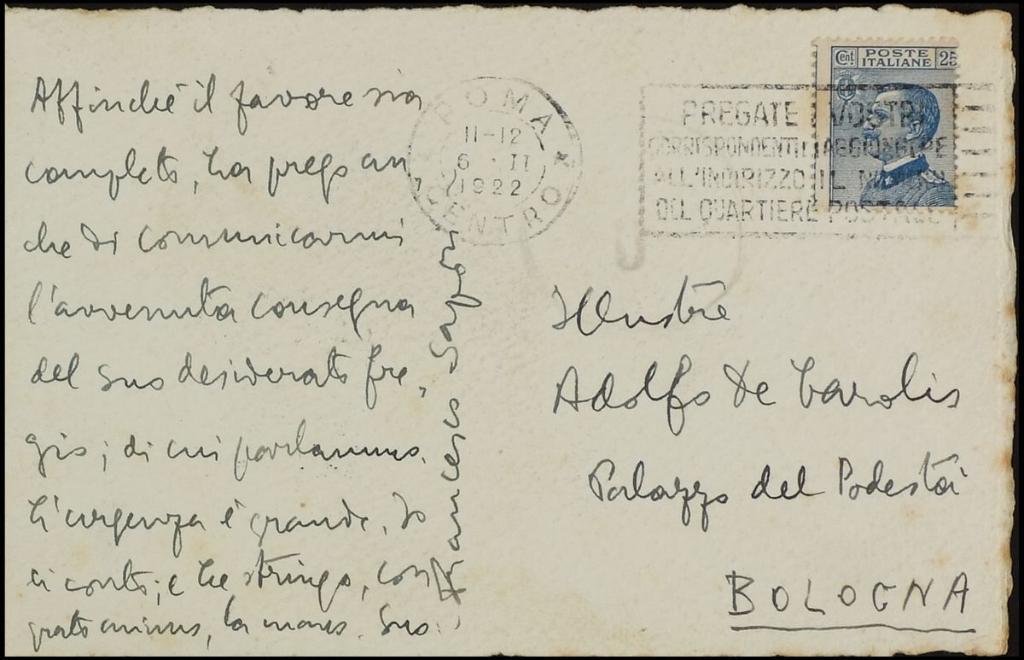 Affinché il favore sia
completo, La prego an
che di comunicarmi
l'avvenuta consegna
del suo desiderato fre„
gio; di cui parlammo.
L'urgenza è grande. Io
ci conto; e Le stringo, con
grato animo, la mano. Suo
Francesco Sapori
ROMA
CENTRO
11-12
6 · II
1922
Cent POSTE 25
ITALIANE
PREGATE I VOSTRI
CORRISPONDENTI D'AGGIUNGERE
ALL'INDIRIZZO IL
DEL QUARTIERE POSTALE
Illustre
Adolfo De Carolis
Palazzo del Podestà
BOLOGNA